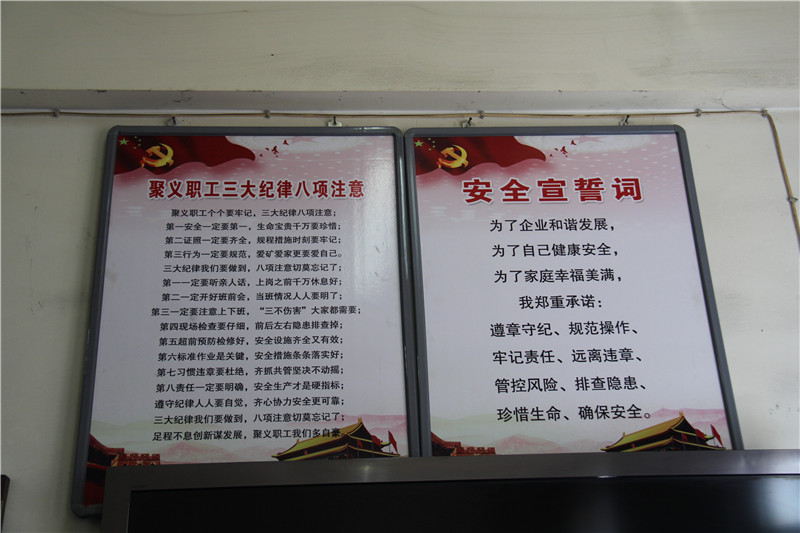 聚义职工三大纪律八项注意
聚义职工个个要牢记，三大纪律八项注意；
第一安全一定要第一，生命宝贵千万要珍惜；
第二证照一定要齐全，规程措施时刻要牢记；
第三行为一定要规范，爱矿爱家更要爱自己。
三大纪律我们要做到，八项注意切莫忘记了；
第一一定要听亲人话，上岗之前千万休息好；
第二一定开好班前会，当班情况人人要明了；
第三一定要注意上下班，“三不伤害”大家都需要；
第四现场检查要仔细，前后左右隐患排查掉；
第五超前预防检修好，安全设施齐全又有效；
第六标准作业是关键，安全措施条条落实好；
第七习惯违章要杜绝，齐抓共管坚决不动摇；
第八责任一定要明确，安全生产才是硬指标；
遵守纪律人人要自觉，齐心协力安全更可靠；
三大纪律我们要做到，八项注意切莫忘记了；
足程不息创新谋发展，聚义职工我们多自豪。
安全宣誓词
为了企业和谐发展，
为了自己健康安全，
为了家庭幸福美满，
我郑重承诺：
遵章守纪、规范操作、
牢记责任、远离违章、
管控风险、排查隐患、
珍惜生命、确保安全。